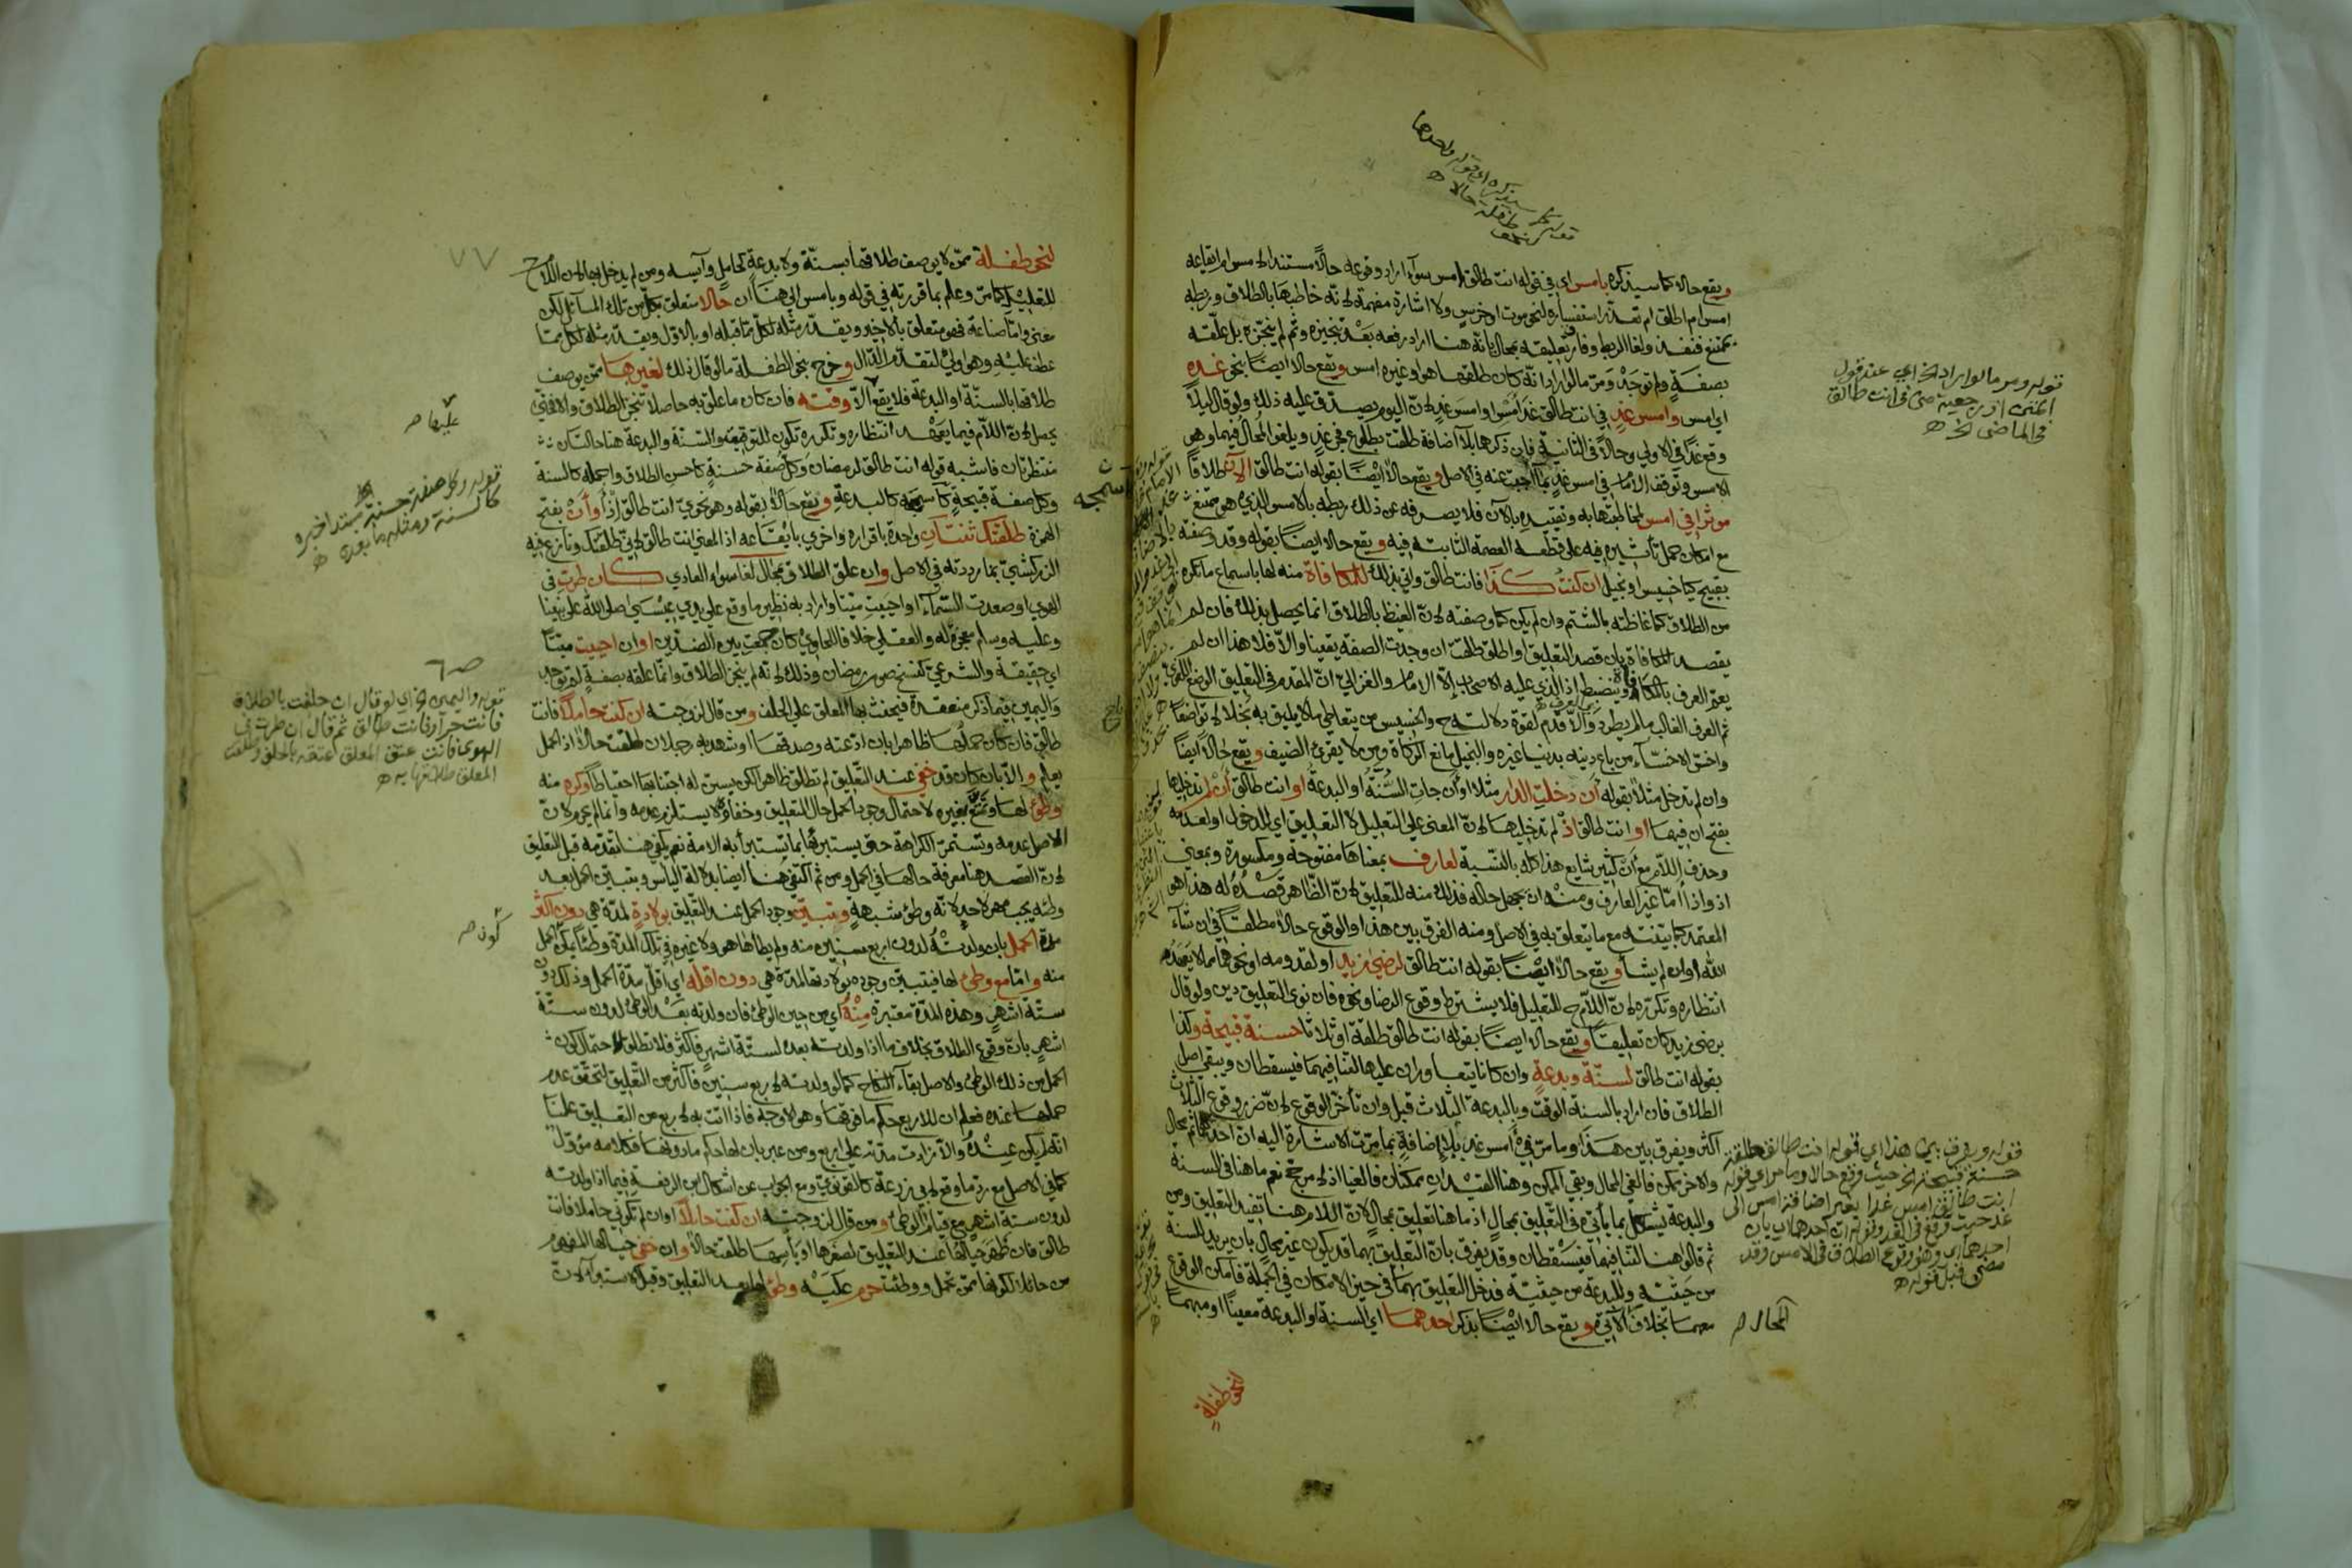 ويقع حالا كما سيذكره بامس اي في قوله انت طالق امس سواء اراد وقوعه حالا مستندا لامس ام ايقاعه
امس ام اطلق ام تعذر استفساره لنحو موت او خرس ولا اشارة مفهمة لانه خاطبها بالطلاق وربطه
بممتنع فنفذ ولغا الربط وفارق تعليقه بمحال بانه هنا اراد رفعه بعد تنجيزه وثم لم ينجزه بل علقه
بصفة ولم توجد ومن ما لو اراد انه كان طلقها هو او غيره امس ويقع حالا ايضا بنحو غد
اي امس وامس غد في انت طالق غدا امس او امس غد لان اليوم يصدق عليه ذلك ولو قال ليلا
وقع غدا في الاولى وحالا في الثانية فان ذكرهما بلا اضافة طلقت بطلوع فجر غد ويلغو المحال فيما وهو
الامس وتوقف الامام في امس غد بما اجبت عنه في الاصل ويقع حالا ايضا بقوله انت طالق الآن طلاقا
موثرا في امس لمخاطبتها به وتقييده بالآن فلا يصرفه عن ذلك ربطه بالامس الذي هو ممتنع
مع امكان حمل تأثيره فيه على قطعه العصمة الثابتة فيه ويقع حالا ايضا بقوله وقد وصفته
بقبيح كيا خسيس او بخيل ان كنت كذا فانت طالق واني بذلك للمكافاة منه لها باسماع ما تكره
من الطلاق كما غاظته بالشتم وان لم يكن كما وصفته لان الغيظ بالطلاق انما يحصل بذلك فان لم
يقصد المكافاة بان قصد التعليق او اطلق طلقت ان وجدت الصفة يقينا والا فلا هذا ان لم
يعم العرف بالمكافاة وينضبط اذ الذي عليه الاصحاب الا الامام والغزالي ان المقدم في التعليق الوضع اللغوي
ثم العرف الغالب ما لم يطرد والا قدم لقوة دلالته ح والخسيس من يتعاطى ما لا يليق به بخلا لا تواضعا
واخس الاخساء من باع دينه بدنيا غيره والبخيل مانع الزكاة ومن لا يقري الضيف ويقع حالا ايضا
وان لم تدخل مثلا بقوله أن دخلت الدار مثلا او أن جات السنة او البدعة او انت طالق أن لم تدخليها
بفتح ان فيهما او انت طالق اذ لم تدخليها لان المعنى على التعليل لا التعليق اي للدخول او لعدمه
وحذف اللام مع أن كثير شايع هذا كله بالنسبة لعارف بمعناها مفتوحة ومكسورة وبمعنى
اذ واذا اما غير العارف ومنه ان يجهل حاله فذلك منه للتعليق لان الظاهر قصده له هذا هو
المعتمد كما بينته مع ما يتعلق به في الاصل ومنه الفرق بين هذا والوقوع حالا مطلقا في ان شاء
الله او ان لم يشأ ويقع حالا ايضا بقوله انت طالق لرضى زيد او لقدومه او نحوهما مما لا يعهد
انتظاره وتكرره لان اللام ح للتعليل فلا يشترط وقوع الرضا ونحوه فان نوى التعليق دين ولو قال
برضى زيد كان تعليقا ويقع حالا ايضا بقوله انت طالق طلقة او ثلاثا حسنة قبيحة وكذا
بقوله انت طالق لسنة وبدعة وان كانا يتعاوران عليها لتنافيهما فيسقطان ويبقى اصل
الطلاق فان اراد بالسنة الوقت وبالبدعة الثلاث قبل وان تأخر الوقوع لان ضرر وقوع الثلاث
اكثر ويفرق بين هذا وما مر في أمس غد بلا اضافة بما مرت الاشارة اليه ان احدهما ثم محال
والاخر ممكن فالغي المحال وبقي الممكن وهنا القيدان ممكنان فالغيا اذ لا مرجح نعم ما هنا في السنة
والبدعة يشكل بما يأتي في التعليق بمحال اذ ما هنا تعليق بمحال لان اللام هنا تفيد التعليق ومن
ثم قالوا هنا لتنافيهما فيسقطان وقد يفرق بان التعليق بهما قد يكون غير محال بان يريد للسنة
من حيثية وللبدعة من حيثية فدخل التعليق بهما في حيز الامكان في الجملة فامكن الوقوع
معهما بخلاف الآتي ويقع حالا ايضا بذكر احدهما اي السنة او البدعة معينا او مبهما
لنحو طفلة
قوله ومر ما لو اراد الخ اي عند قول
المتن او رجعية مني في انت طالق
في الماضي الخ ه
قوله ويفرق بين هذا اي قوله انت طالق طلقة
حسنة قبيحة الخ حيث وقع حالا وما مر اي قوله
انت طالق امس غدا بغير اضافة امس الى
غد حيث وقع في الغد وقوله ان احدهما اي بان
احدهما اي وهو وقوع الطلاق في الامس وقد
مضى قبل قوله ه
المحال ص
٧٧
لنحو طفلة ممن لا يوصف طلاقها بسنة ولا بدعة كحامل وآيسة ومن لم يدخل بها لان اللام ح
للتعليل كما مر وعلم بما قررته في قوله وبامس الى هنا ان حالا متعلق بكل من تلك المسائل لكن
معنى واما صناعة فهو متعلق بالاخير ويقدر مثله لكل مما قبله او بالاول ويقدر مثله لكل مما
عطف عليه وهو اولى لتقدم الدال وخرج بنحو الطفلة ما لو قال ذلك لغيرها ممن يوصف
طلاقها بالسنة او البدعة فلا يقع الا وقته فان كان ما علق به حاصلا تنجز الطلاق والا فمتى
يحصل لان اللام فيما يعهد انتظاره وتكرره تكون للتوقيت والسنة والبدعة هنا حالتان
منتظرتان فاشبه قوله انت طالق لرمضان وكل صفة حسنة كاحسن الطلاق واجمله كالسنة
وكل صفة قبيحة كاسمجه كالبدعة ويقع حالا بقوله وهو نحوي انت طالق اذ أو أن بفتح
الهمزة طلقتك ثنتان واحدة باقراره واخرى بايقاعه اذ المعنى انت طالق لاني طلقتك ونازع فيه
الزركشي بما رددته في الاصل وان علق الطلاق بمحال لغا سواء العادي كان طرت في
الهوى او صعدت السماء او احييت ميتا واراد به نظير ما وقع على يدي عيسى صلى الله على نبينا
وعليه وسلم معجزة له والعقلي خلافا للحاوي كان جمعت بين الضدين او ان احييت ميتا
اي حقيقة والشرعي كنسخ صوم رمضان وذلك لانه لم ينجز الطلاق وانما علقه بصفة لم توجد
واليمين فيما ذكر منعقدة فيحنث بها المعلق على الحلف ومن قال لزوجته ان كنت حاملا فانت
طالق فان كان حملها ظاهرا بان ادعته وصدقها او شهد به رجلان طلقت حالا اذ الحمل
يعلم والا بان كان قد خفي عند التعليق لم تطلق ظاهرا لكن يسن له اجتنابها احتياطا وكره منه
وطئ لها وتمتع بغيره لاحتمال وجود الحمل حال التعليق وخفاؤه لا يستلزم عدمه وانما لم يحرم لان
الاصل عدمه وتستمر الكراهة حتى يستبرئها بما تستبرأ به الامة نعم يكفي هنا تقدمه قبل التعليق
لان القصد هنا معرفة حالها في الحمل ومن ثم اكتفى هنا ايضا بدلالة الياس وبتبين الحمل بعد
وطئه يجب مهر لا حد لانه وطئ شبهة ويتبين وجود الحمل عند التعليق بولادة لمدة هي دون اكثر
مدة الحمل بان ولدته لدون اربع سنين منه ولم يطأها هو ولا غيره في تلك المدة وطئا يمكن الحمل
منه واما مع وطئ لها فيتبين وجوده بولادتها لمدة هي دون اقله اي اقل مدة الحمل وذلك دون
ستة اشهر وهذه المدة معتبرة منه اي من حين الوطئ فان ولدته بعد الوطئ لدون ستة
اشهر بان وقوع الطلاق بخلاف ما اذا ولدته بعده لستة اشهر فاكثر فلا تطلق لاحتمال كون
الحمل من ذلك الوطئ والاصل بقاء النكاح كما لو ولدته لاربع سنين فاكثر من التعليق لتحقق عدم
حملها عنده فعلم ان للاربع حكم ما فوقها وهو الاوجه فاذا اتت به لاربع من التعليق علمنا
انه لم يكن عنده والا زادت مدته على اربع ومن عبر بان لها حكم ما دونها فكلامه مؤول
كما في الاصل مع رد ما وقع لابي زرعة كالقونوي ومع الجواب عن اشكال ابن الرفعة فيما اذا ولدته
لدون ستة اشهر مع قيام الوطئ ومن قال لزوجته ان كنت حائلا او ان لم تكوني حاملا فانت
طالق فان ظهر حيالها عند التعليق لصغرها او يأسها طلقت حالا وان خفي حيالها المفهوم
من حائلا لكونها ممن تحمل ووطئت حرم عليه وطئ لها بعد التعليق وقبل الاستبراء لان
عليها ص
قوله وكل صفة حسنة مبتدا خبره
كالسنة ومثله ما بعده ه
سمجه
قوله واليمين الخ اي لو قال ان حلفت بالطلاق
فانت حر او فانت طالق ثم قال ان طرت في
الهوى فانت عتق المعلق عتقه بالحلف وطلقت
المعلق طلاقها به ه
كون ص